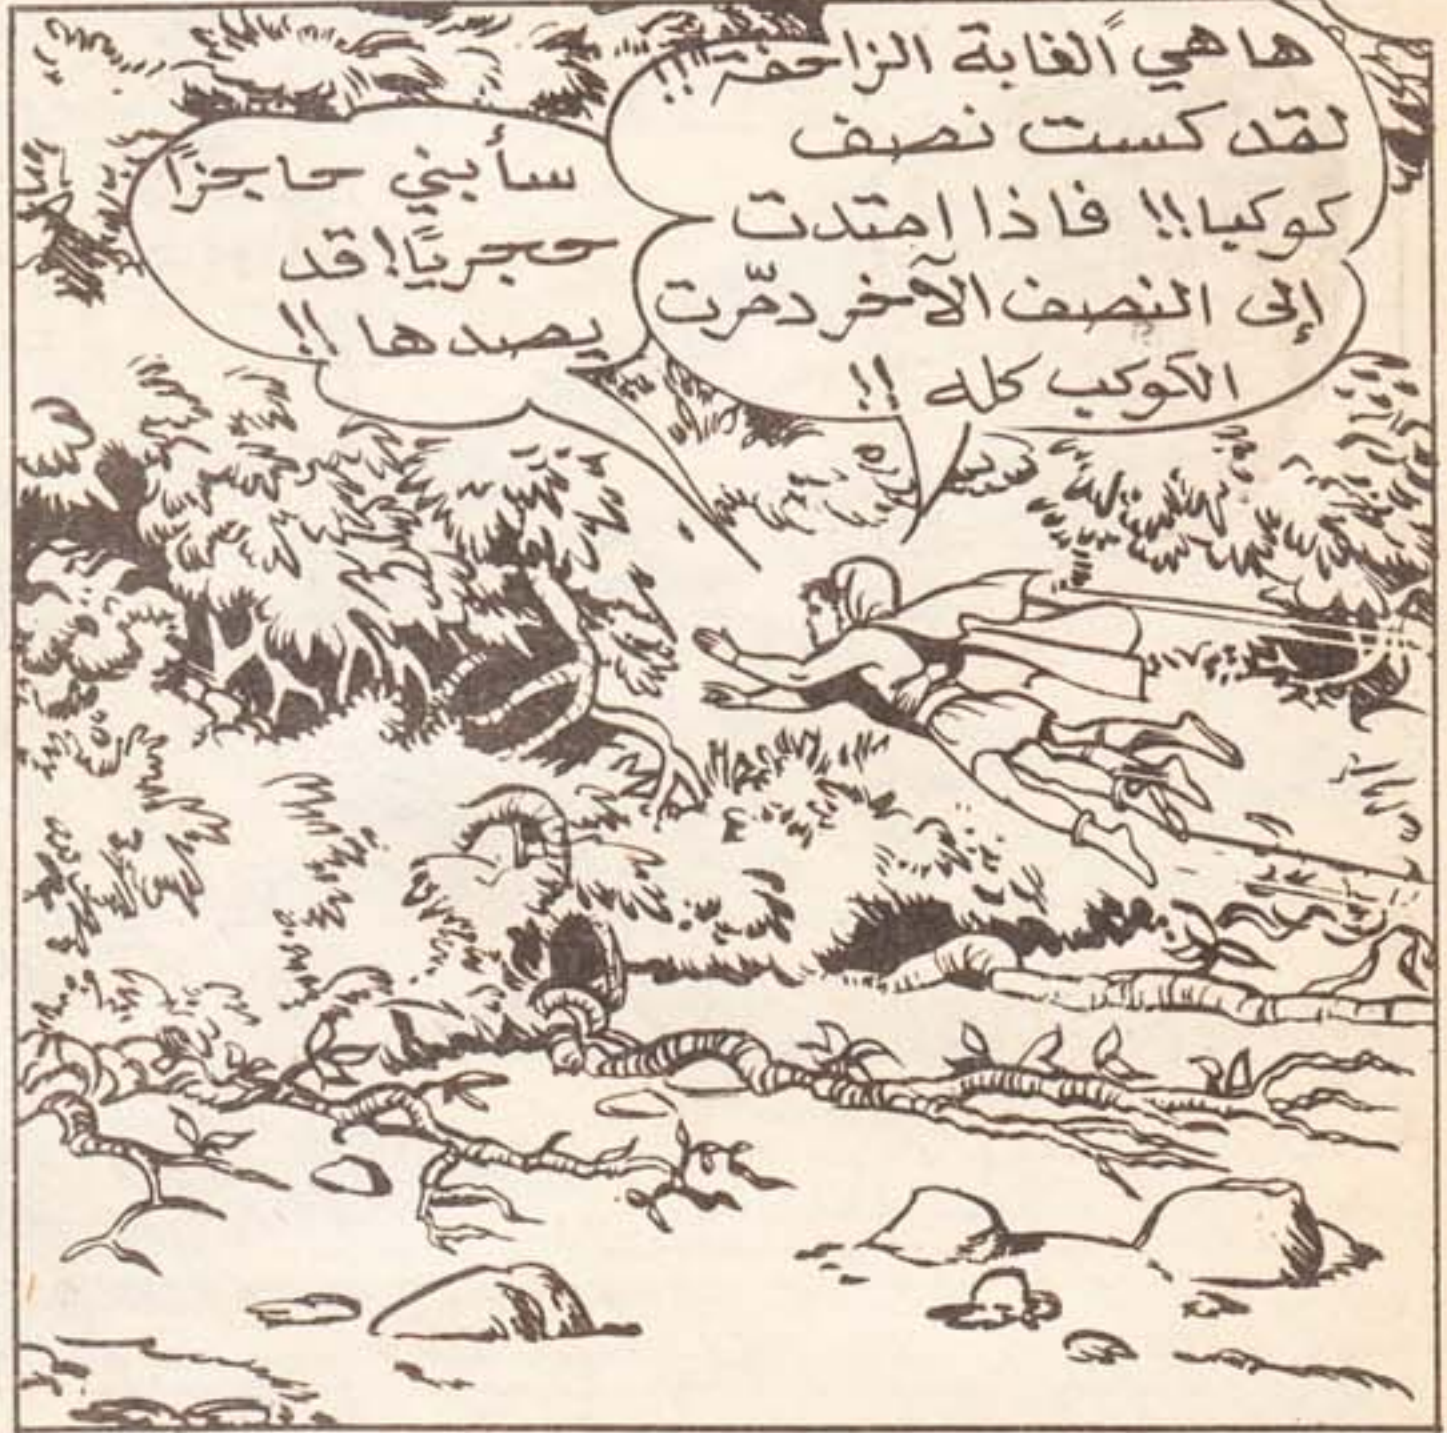 ها هي الغابة الزاحفة !!
لقد كست نصف
كوكبا !! فاذا امتدت
إلى النصف الآخر دمّرت
الكوكب كله !!
سأبني حاجزًا
حجريًا ! قد
يصدها !!